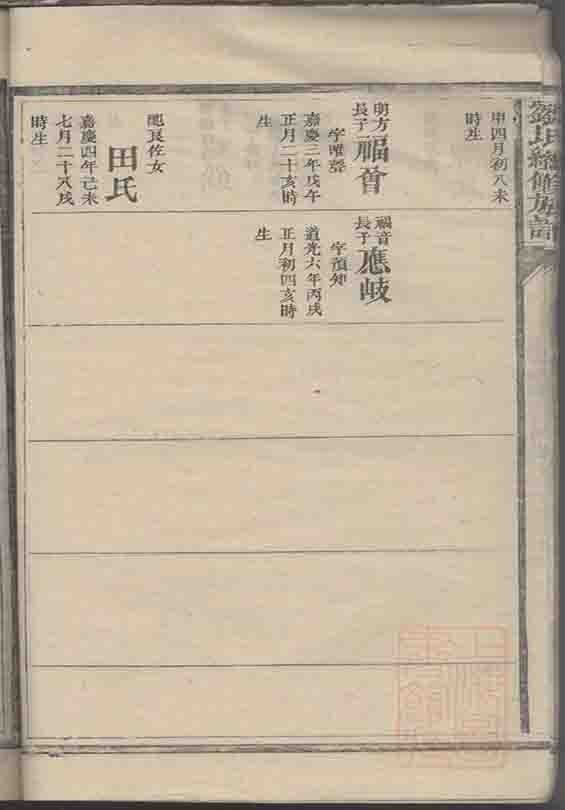 劉氏續修族譜
申四月初八未
時生
明方
長子
福音
字唯聲
嘉慶三年戊午
正月二十亥時
生
配艮佐女
田氏
嘉慶四年己未
七月二十八戌
時生
福音
長子
應岐
字預知
道光六年丙戌
正月初四亥時
生